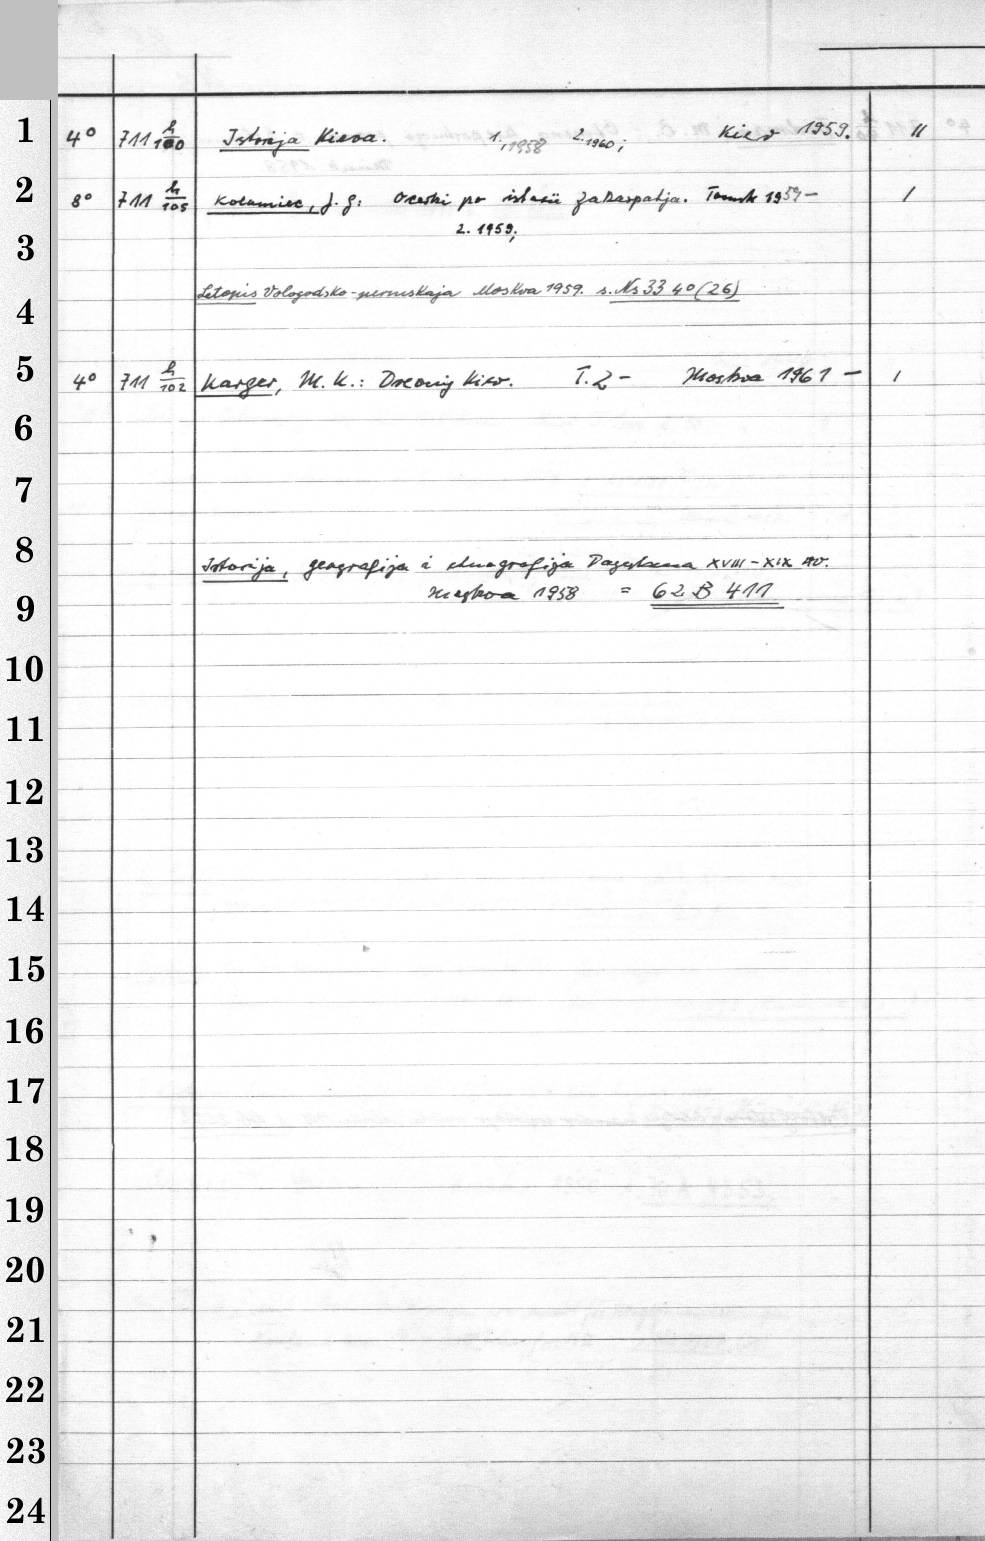 1 4° 711 h/100 Istorija Kieva. 1., 1958 2. 1960; Kiev 1959. II
2 8° 711 h/105 Kolomiec, J. G: Ocerki po istorii Zakarpatja. Tomsk 1959 – I
3 2. 1959;
4 Letopis Vologodsko-permskaja Moskva 1959. s. Ns 33 4° (26)
5 4° 711 h/102 Karger, M. K.: Drevnij Kiev. T. 2 – Moskva 1961 – I
6
7
8 Istorija, geografija i etnografija Dagestana XVIII – XIX vv.
9 Moskva 1958 = 62 B 411
10
11
12
13
14
15
16
17
18
19
20
21
22
23
24